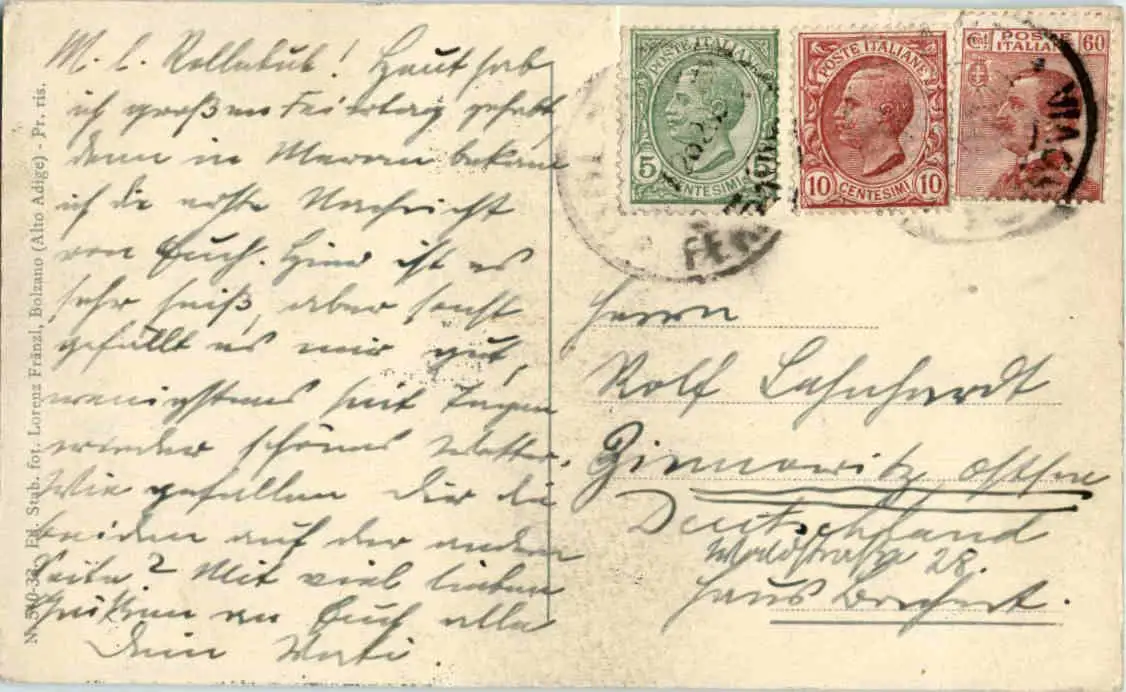 M. l. Rollebub! Heut hab
ich großen Feiertag gehabt,
denn in Meran bekam
ich die erste Nachricht
von Euch. Hier ist es
sehr heiß, aber sonst
gefällt es mir gut,
wenigstens seit Tagen
wieder schönes Wetter.
Wie gefallen Dir die
beiden auf der andern
Seite? Mit viel lieben
Grüßen an Euch alle
Dein Vati.
Ed. Stab. fot. Lorenz Fränzl, Bolzano (Alto Adige) - Pr. ris.
POSTE ITALIANE
5
CENTESIMI
POSTE ITALIANE
10 CENTESIMI 10
Cmi POSTE ITALIANE 60
Herrn
Rolf Lahnhardt
Zinnowitz Ostsee
Deutschland
Waldstraße 28.
Haus